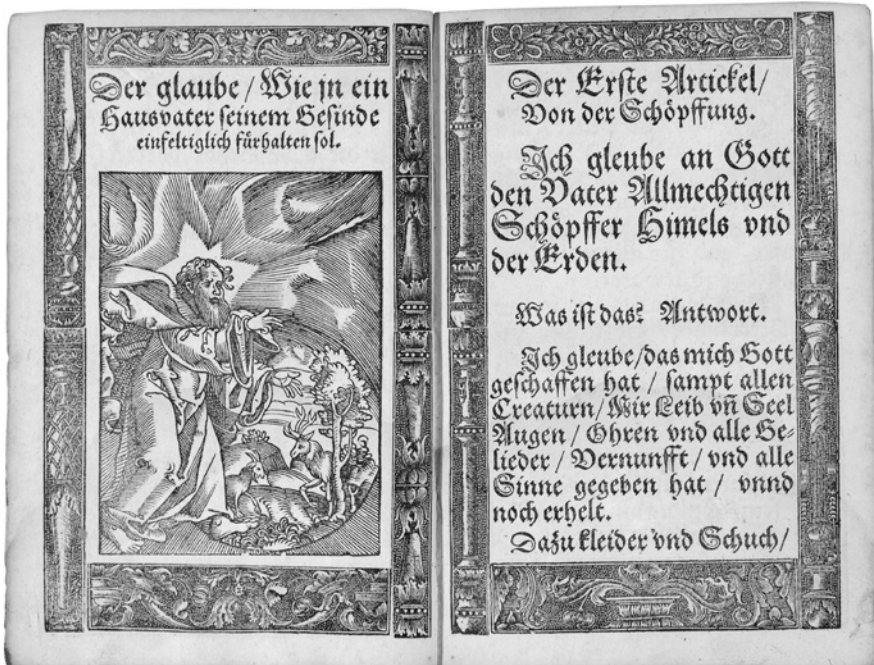 Der glaube / Wie jn ein
Hausvater seinem Gesinde
einfeltiglich fürhalten sol.
Der Erste Artickel /
Von der Schöpffung.
Ich gleube an Gott
den Vater Allmechtigen
Schöpffer Himels vnd
der Erden.
Was ist das? Antwort.
Ich gleube / das mich Gott
geschaffen hat / sampt allen
Creaturn / Mir Leib vñ Seel
Augen / Ohren vnd alle Ge⸗
lieder / Vernunfft / vnd alle
Sinne gegeben hat / vnnd
noch erhelt.
Dazu kleider vnd Schuch /